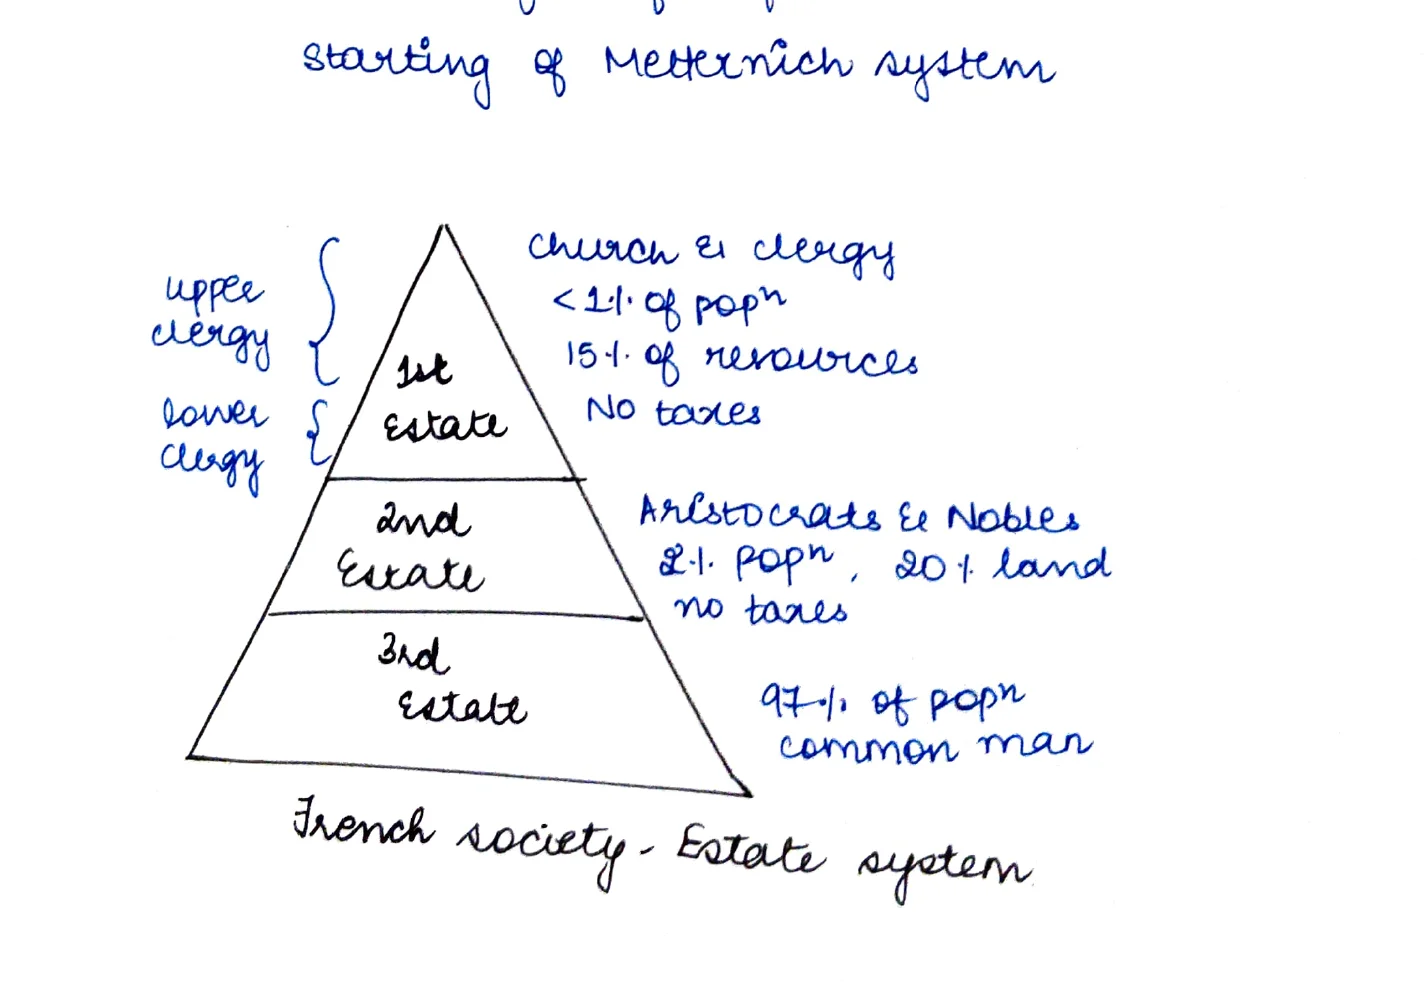 starting of Metternich system
upper
clergy
lower
clergy
1st
Estate
church & clergy
<1% of popⁿ
15% of resources
No taxes
2nd
Estate
Aristocrats & Nobles
2% popⁿ, 20% land
no taxes
3rd
Estate
97% of popⁿ
common man
French society - Estate system